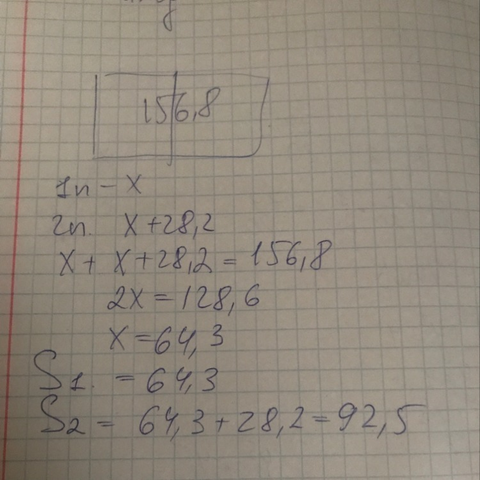 156,8
1п - x
2п. x+28,2
x + x+28,2=156,8
2x=128,6
x=64,3
S1. = 64,3
S2 = 64,3+28,2=92,5